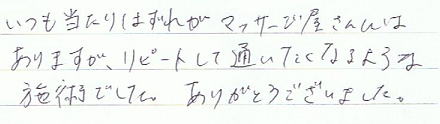 いつも当たりはずれがマッサージ屋さんには
ありますが、リピートして通いたくなるような
施術でした。ありがとうございました。